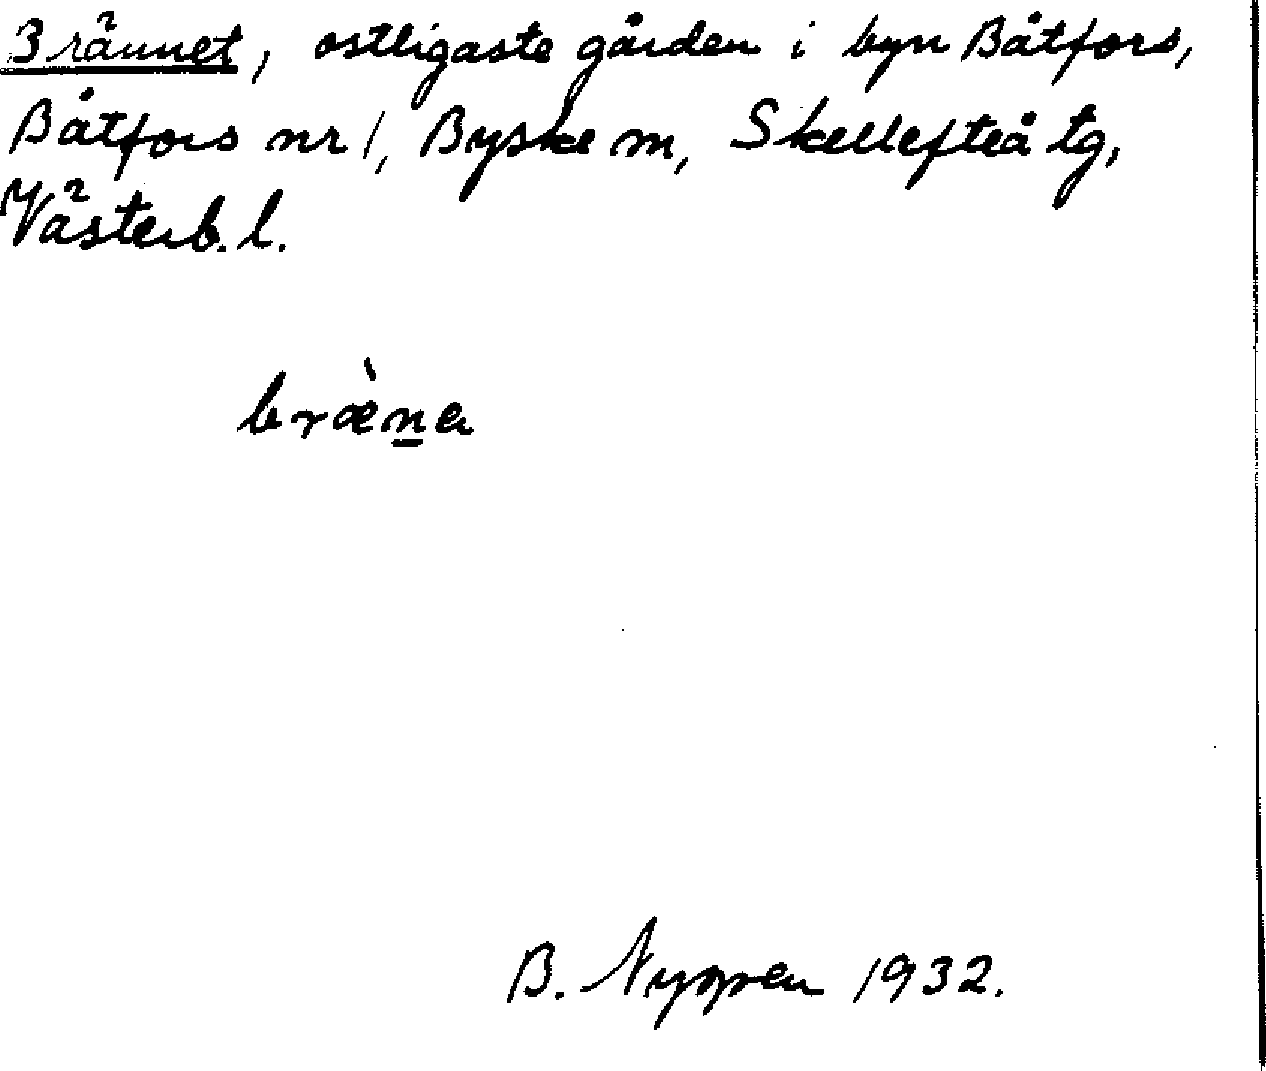 Brännet, ostligaste gården i byn Båtfors,
Båtfors nr 1, Byske sn, Skellefteå tg,
Västerb. l.
bræ̀n̲a
B. Nygren 1932.